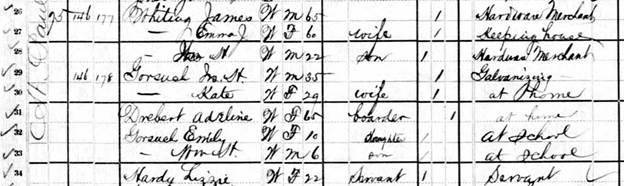 26 25 146 177 Whiting James W M 65 1 Hardware Merchant
27 — Emma J W F 60 wife 1 Keeping house
28 — St. W M 22 Son 1 Merchant
29 146 178 Gorsuch Jno. St. W M 35 1 Galvanizing
30 — Kate W F 29 wife 1 at home
31 Drebert Adeline W F 65 boarder 1 at home
32 Gorsuch Emily W F 10 daughter 1 at School
— Wm St. W M 6 son 1 at School
34 Hardy Lizzie W F 22 Servant 1 Servant